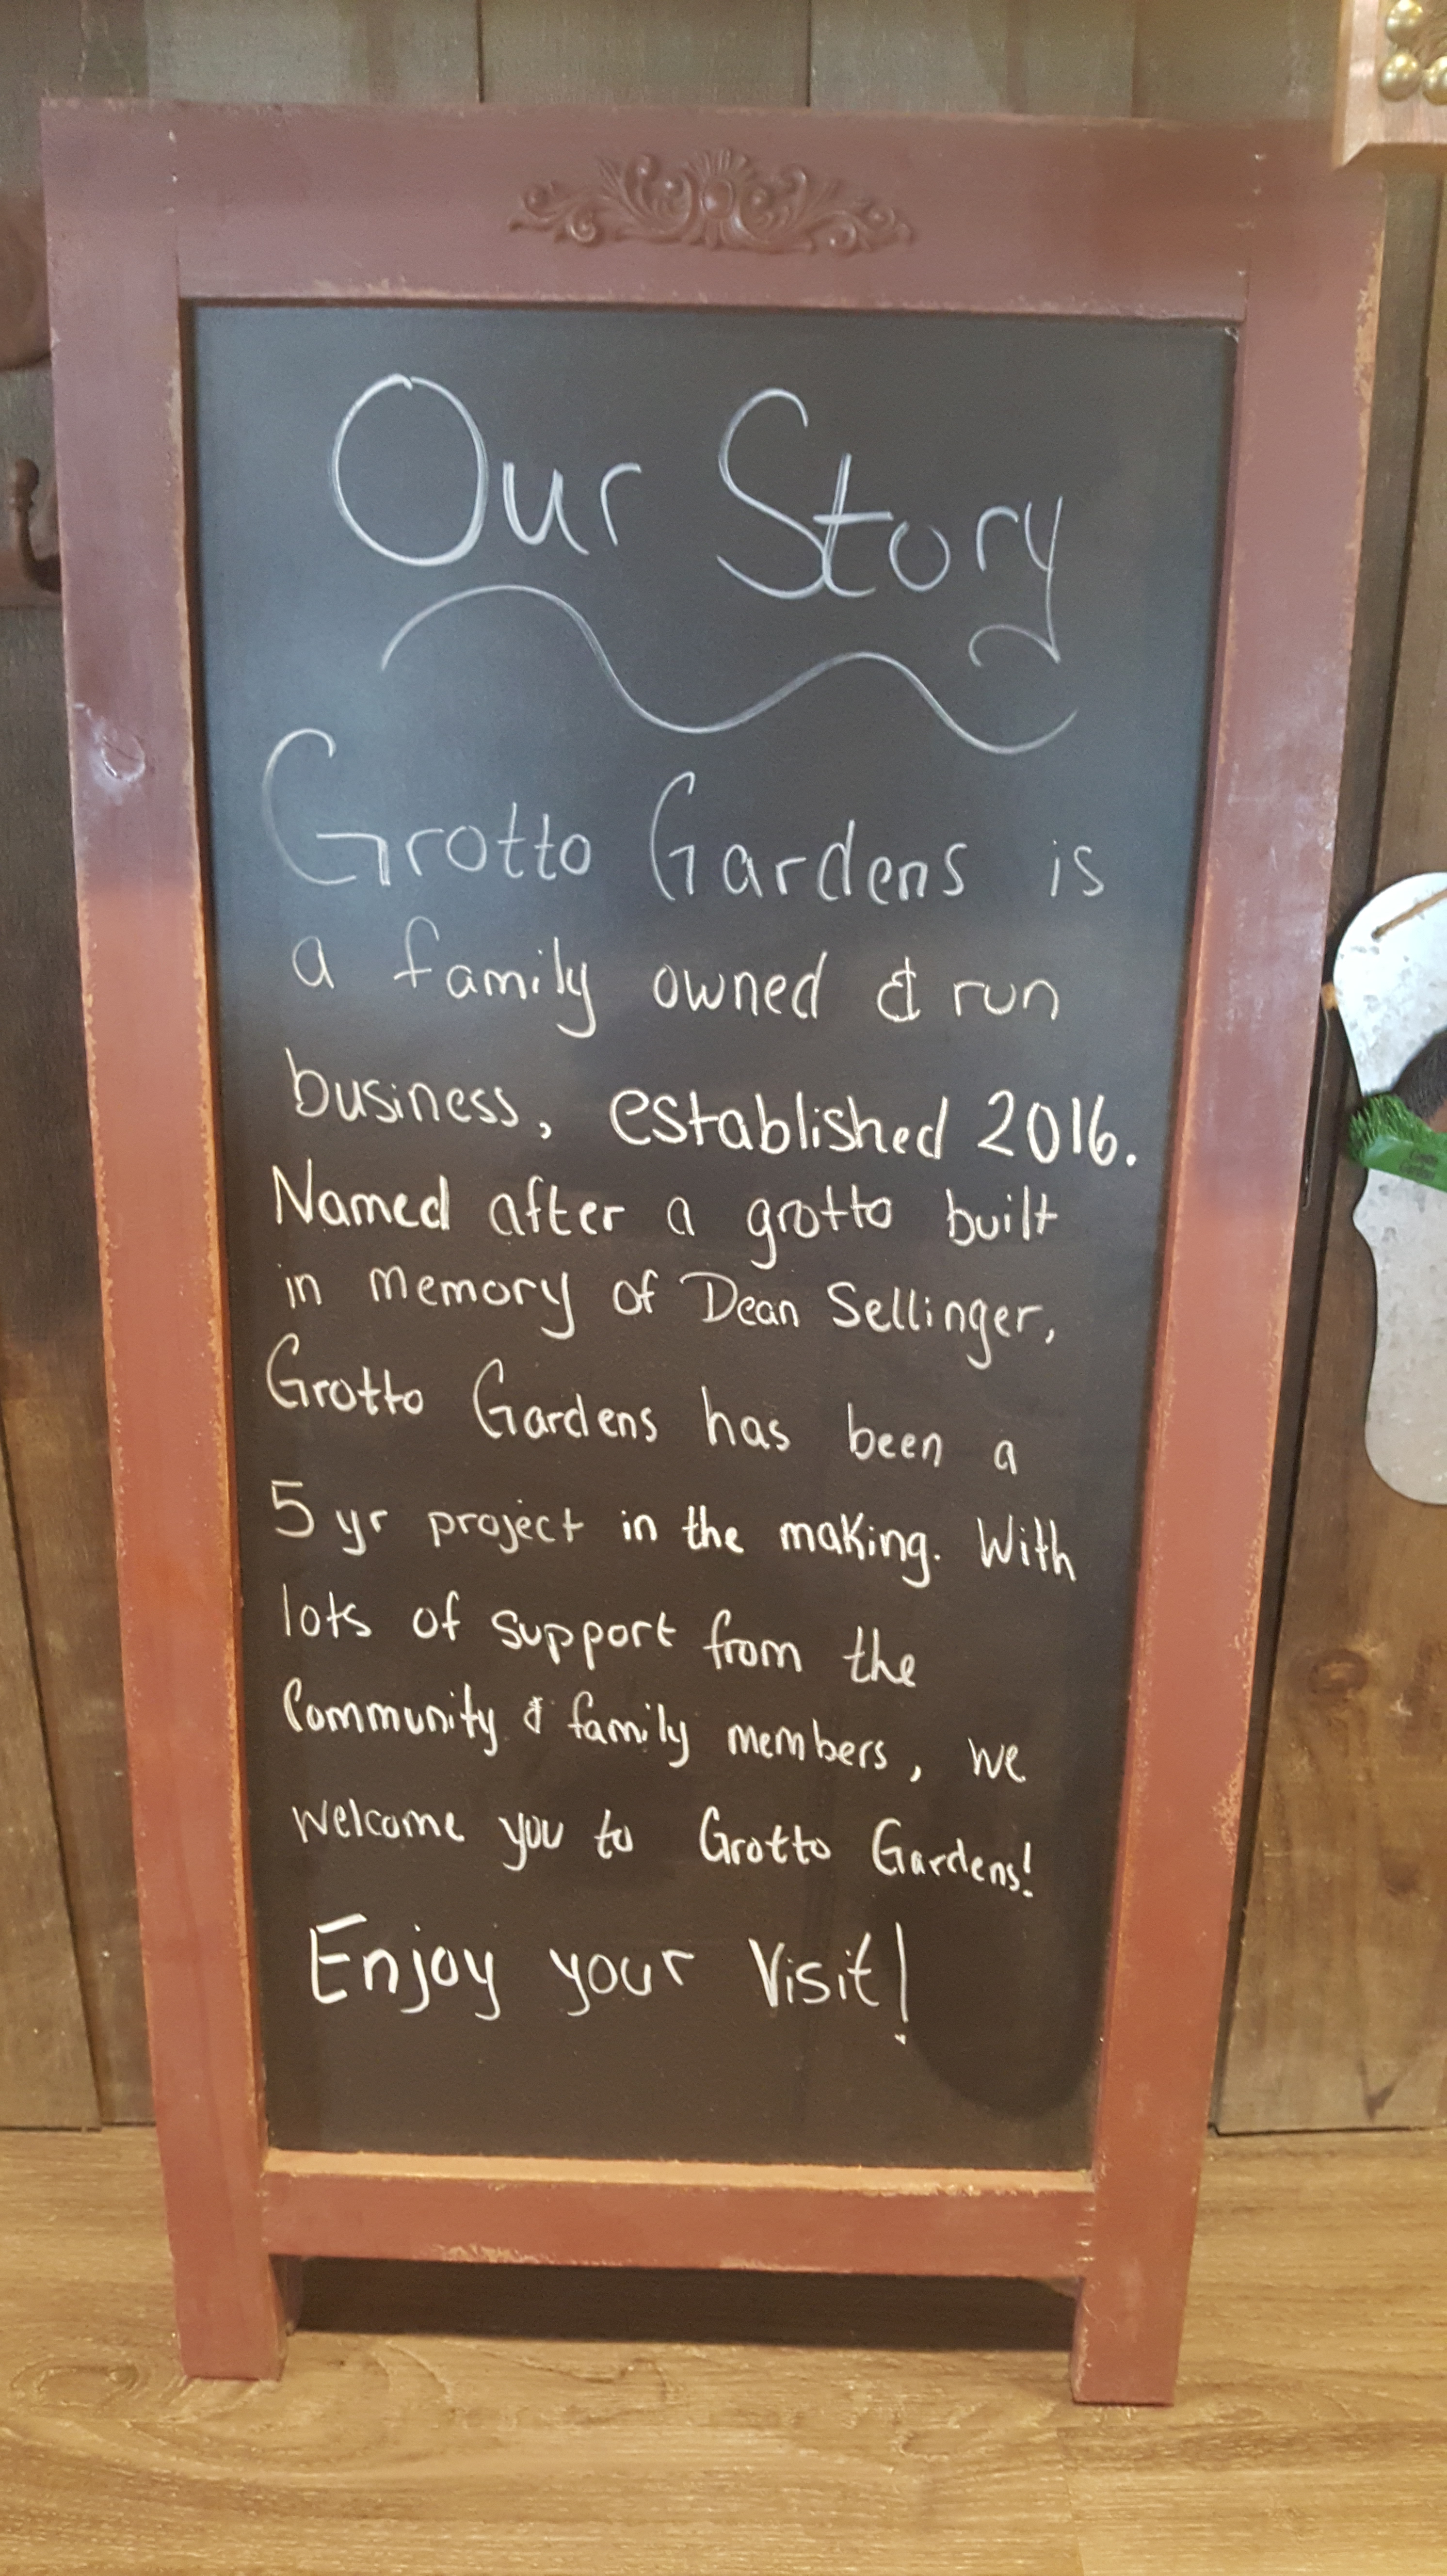 Our Story
Grotto Gardens is
a family owned & run
business, established 2016.
Named after a grotto built
in memory of Dean Sellinger,
Grotto Gardens has been a
5 yr project in the making. With
lots of support from the
Community & family members, we
welcome you to Grotto Gardens!
Enjoy your Visit!